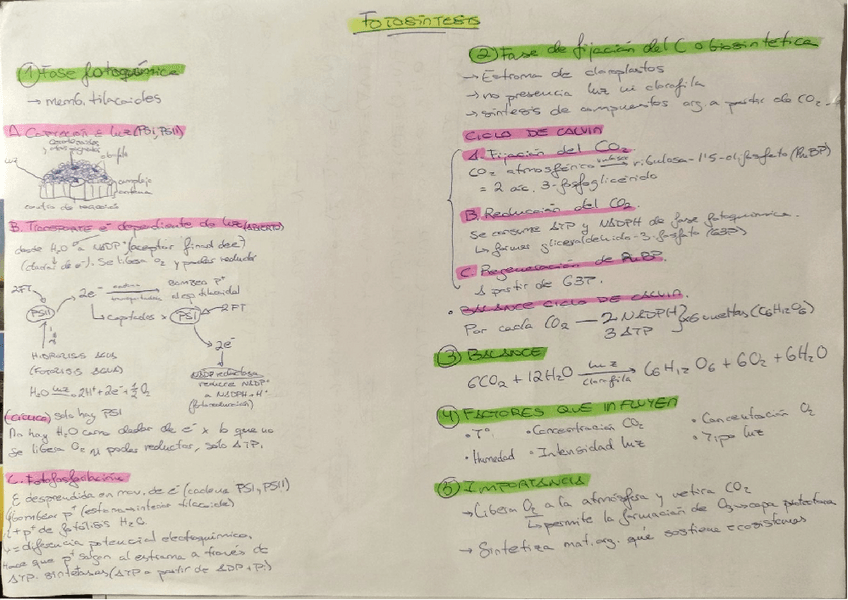 FOTOSÍNTESIS
① Fase fotoquímica
→ memb. tilacoides
A. Captación E luz (PSI, PSII)
luz
complejo
antena
centro de reacción
B. Transporte e⁻ dependiente de luz (ABIERTO)
desde H₂O a NADP⁺ (aceptor final de e⁻)
(dador de e⁻). Se libera O₂ y poder reductor
2FT
PSII → 2e⁻ → Bombeo p⁺
al esp. tilacoidal
↳ captados → PSI ← 2FT
2e⁻
HIDRÓLISIS AGUA
(FOTÓLISIS AGUA)
H₂O luz→ 2H⁺ + 2e⁻ + ½ O₂
NADP reductasa
reduce NADP⁺
a NADPH + H⁺
(fotorreducción)
(CÍCLICA) solo hay PSI
No hay H₂O como dador de e⁻ x lo que no
se libera O₂ ni poder reductor, solo ATP.
C. Fotofosforilación
E desprendida en mov. de e⁻ (cadena PSI, PSII)
bombear p⁺ (estroma → interior tilacoide)
+ p⁺ de fotólisis H₂O
= diferencia potencial electroquímico.
Hace que p⁺ salgan al estroma a través de
ATP sintetasas (ATP a partir de ADP + Pi)
② Fase de fijación del C o biosintética
→ Estroma de cloroplastos
→ no presencia luz ni clorofila
→ síntesis de compuestos org. a partir de CO₂.
CICLO DE CALVIN
A. Fijación del CO₂
CO₂ atmosférico rubisco→ ribulosa-1,5-difosfato (RuBP)
= 2 ác. 3-fosfoglicérido
B. Reducción del CO₂.
Se consume ATP y NADPH de fase fotoquímica.
↳ formar gliceraldehído-3-fosfato (G3P)
C. Regeneración de RuBP.
A partir de G3P.
• BALANCE CICLO DE CALVIN.
Por cada CO₂ — 2 NADPH
3 ATP } x6 vueltas (C₆H₁₂O₆)
③ BALANCE
6CO₂ + 12H₂O luz→ clorofila C₆H₁₂O₆ + 6O₂ + 6H₂O
④ FACTORES QUE INFLUYEN
• Tº • Concentración CO₂ • Concentración O₂
• Humedad • Intensidad luz • Tipo luz
⑤ IMPORTANCIA
→ Libera O₂ a la atmósfera y retira CO₂
↳ permite la formación de O₃ → capa protectora
→ Sintetiza mat. org. que sostiene ecosistemas